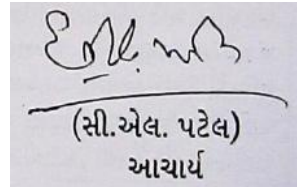 (સી.એલ. પટેલ)
આચાર્ય